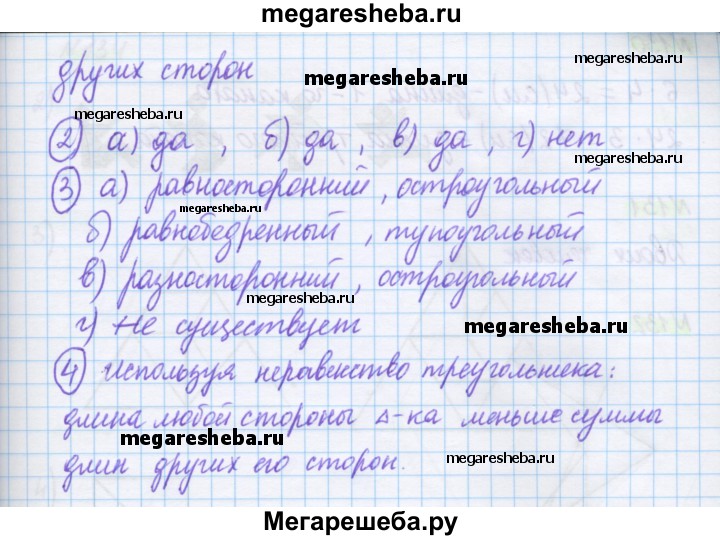 megaresheba.ru
других сторон
megaresheba.ru
megaresheba.ru
megaresheba.ru
2) а) да , б) да , в) да , г) нет
3) а) равносторонний , остроугольный
megaresheba.ru
б) равнобедренный , тупоугольный
в) разносторонний , остроугольный
megaresheba.ru
г) Не существует
megaresheba.ru
4) Используя неравенство треугольника:
длина любой стороны Δ-ка меньше суммы
megaresheba.ru
длин других его сторон.
megaresheba.ru
Мегарешеба.ру